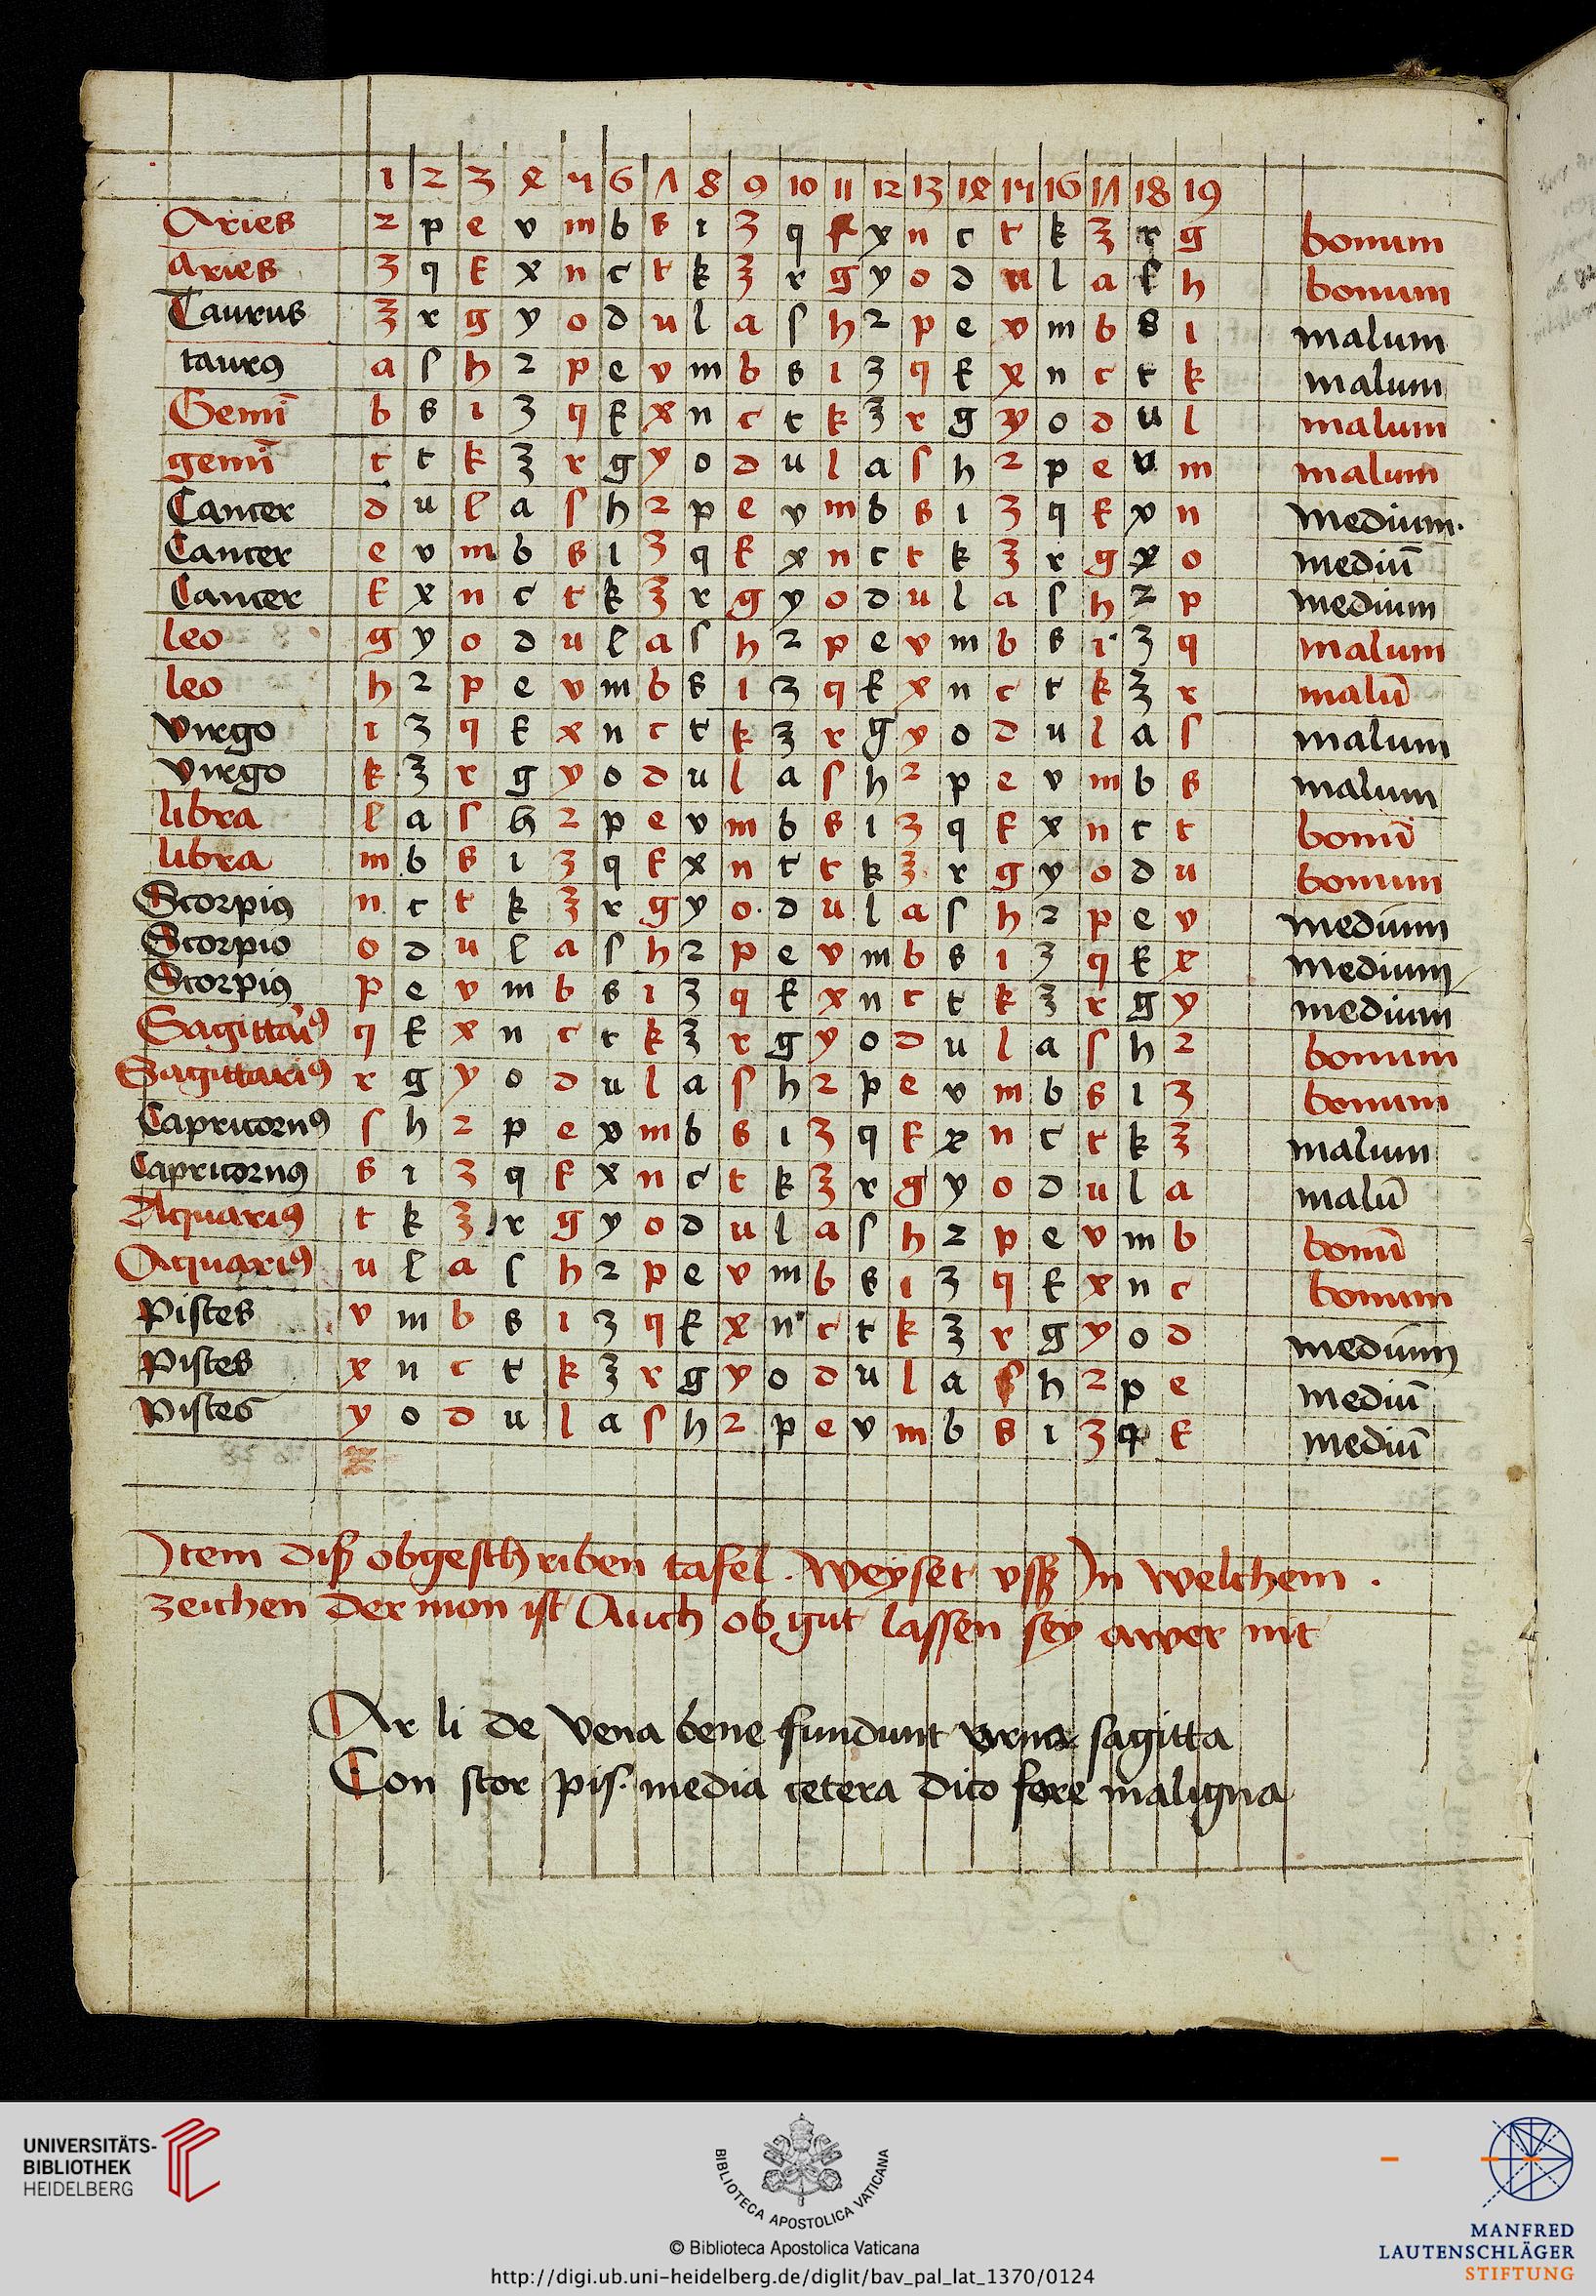 1 2 3 4 5 6 7 8 9 10 11 12 13 14 15 16 17 18 19
Aries 2 p e v m b s i 3 q f x n c t k ʒ r g bonum
aries 3 q f x n c t k ʒ r g y o d u l a ſ h bonum
Taurus ʒ r g y o d u l a ſ h 2 p e v m b s i malum
taurꝰ a ſ h 2 p e v m b s i 3 q f x n c t k malum
Gemī b s i 3 q f x n c t k ʒ r g y o d u l malum
gemī c t k ʒ r g y o d u l a ſ h 2 p e v m malum
Cancer d u l a ſ h 2 p e v m b s i 3 q f x n medium.
Cancer e v m b s i 3 q f x n c t k ʒ r g y o mediū
Cancer f x n c t k ʒ r g y o d u l a ſ h 2 p medium
leo g y o d u l a ſ h 2 p e v m b s i 3 q malum
leo h 2 p e v m b s i 3 q f x n c t k ʒ r malū
virgo i 3 q f x n c t k ʒ r g y o d u l a ſ malum
virgo k ʒ r g y o d u l a ſ h 2 p e v m b s malum
libra l a ſ h 2 p e v m b s i 3 q f x n c t bonū
libra m b s i 3 q f x n c t k ʒ r g y o d u bonum
Scorpiꝰ n c t k ʒ r g y o d u l a ſ h 2 p e v medium
Scorpio o d u l a ſ h 2 p e v m b s i 3 q f x medium
Scorpiꝰ p e v m b s i 3 q f x n c t k ʒ r g y medium
Sagittariꝰ q f x n c t k ʒ r g y o d u l a ſ h 2 bonum
Sagittariꝰ r g y o d u l a ſ h 2 p e v m b s i 3 bonum
Capricornꝰ ſ h 2 p e v m b s i 3 q f x n c t k ʒ malum
Capricornꝰ s i 3 q f x n c t k ʒ r g y o d u l a malū
Aquariꝰ t k ʒ r g y o d u l a ſ h 2 p e v m b bonū
Aquariꝰ u l a ſ h 2 p e v m b s i 3 q f x n c bonum
pisces v m b s i 3 q f x n c t k ʒ r g y o d medium
pisces x n c t k ʒ r g y o d u l a ſ h 2 p e mediū
pisces y o d u l a ſ h 2 p e v m b s i 3 q f mediū
Item diſz obgeſchriben tafel . weyſet vſſz In welchem .
zeichen der mon iſt Auch ob gut laſſen ſey awer nit
Ar li de vena bene fundunt vrna sagitta
Con scor pis. media cetera dico fore maligna
UNIVERSITÄTS-
BIBLIOTHEK
HEIDELBERG
BIBLIOTECA APOSTOLICA VATICANA
© Biblioteca Apostolica Vaticana
http://digi.ub.uni-heidelberg.de/diglit/bav_pal_lat_1370/0124
MANFRED
LAUTENSCHLÄGER
STIFTUNG